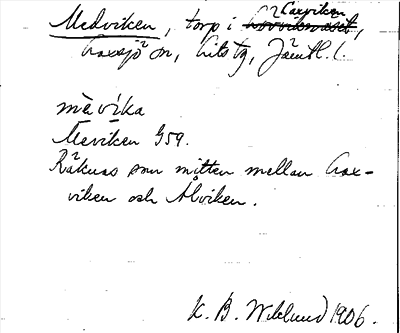 Laxviken
Medviken, torp i
Laxsjö sn, Lits tg, Jämtl. l.
mèvíka
Meviken G59.
Räknas som mitten mellan Lax-
viken och Alviken.
K. B. Wiklund 1906.